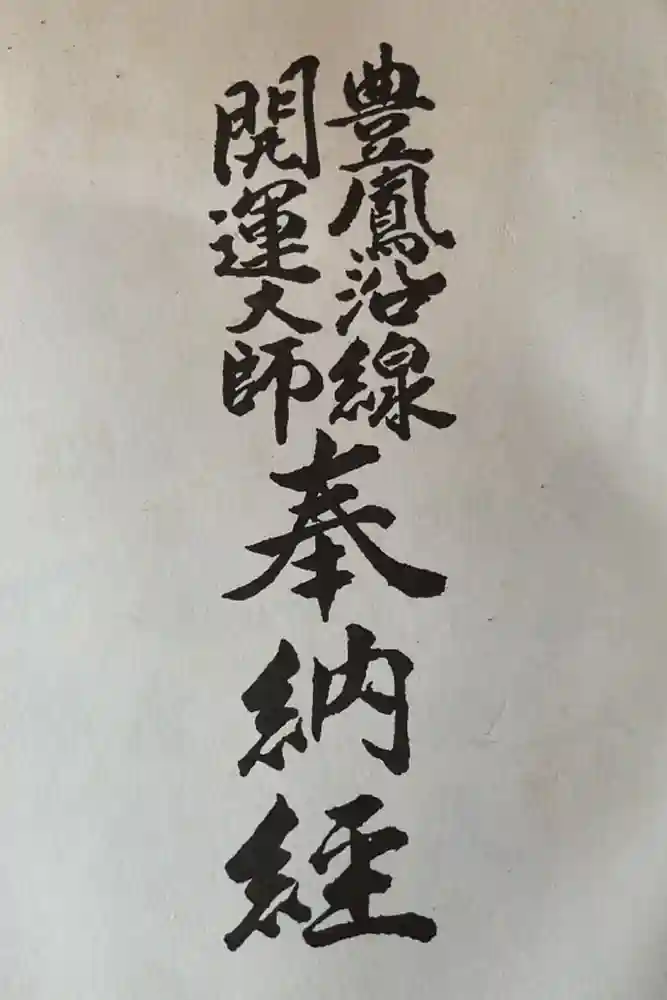 豊鳳沿線
開運大師
奉納経